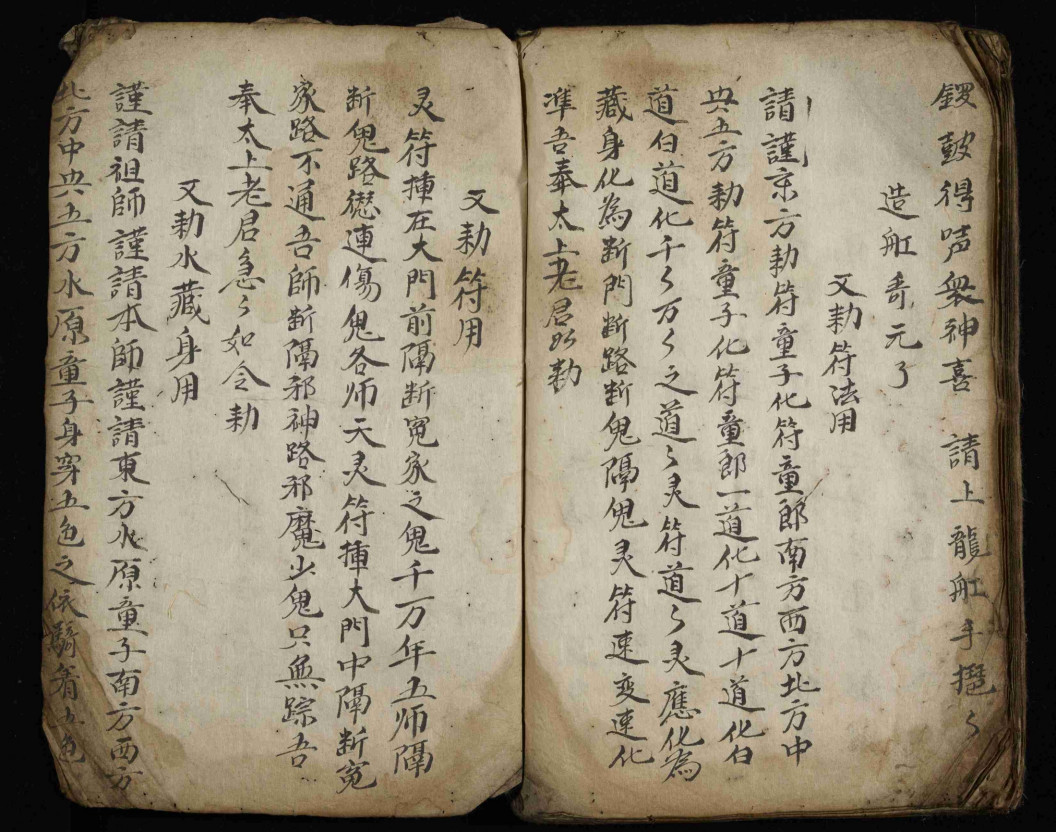 鑼鼓得唠衆神喜 請上龍舡手摇〻
造舡哥元了
又勅符法用
請謹東方勅符童子化符童郎南方西方北方中
央五方勅符童子化符童郎一道化十道十道化白
道白道化千〻万〻之道〻灵符道〻灵應化為
藏身化為断門断路断鬼隔鬼灵符速变速化
凖吾奉太上老君必勅
又勅符用
灵符揷在大門前隔断冤家之鬼千万年五师隔
断鬼路遱連傷鬼各师天灵符揷大門中隔断冤
家路不通吾師断隔邪神路邪魔少鬼只無踪吾
奉太上老君急〻如令勅
又勅水藏身用
謹請祖師謹請本師謹請東方水原童子南方西方
北方中央五方水原童子身穿五色之依騎着五色